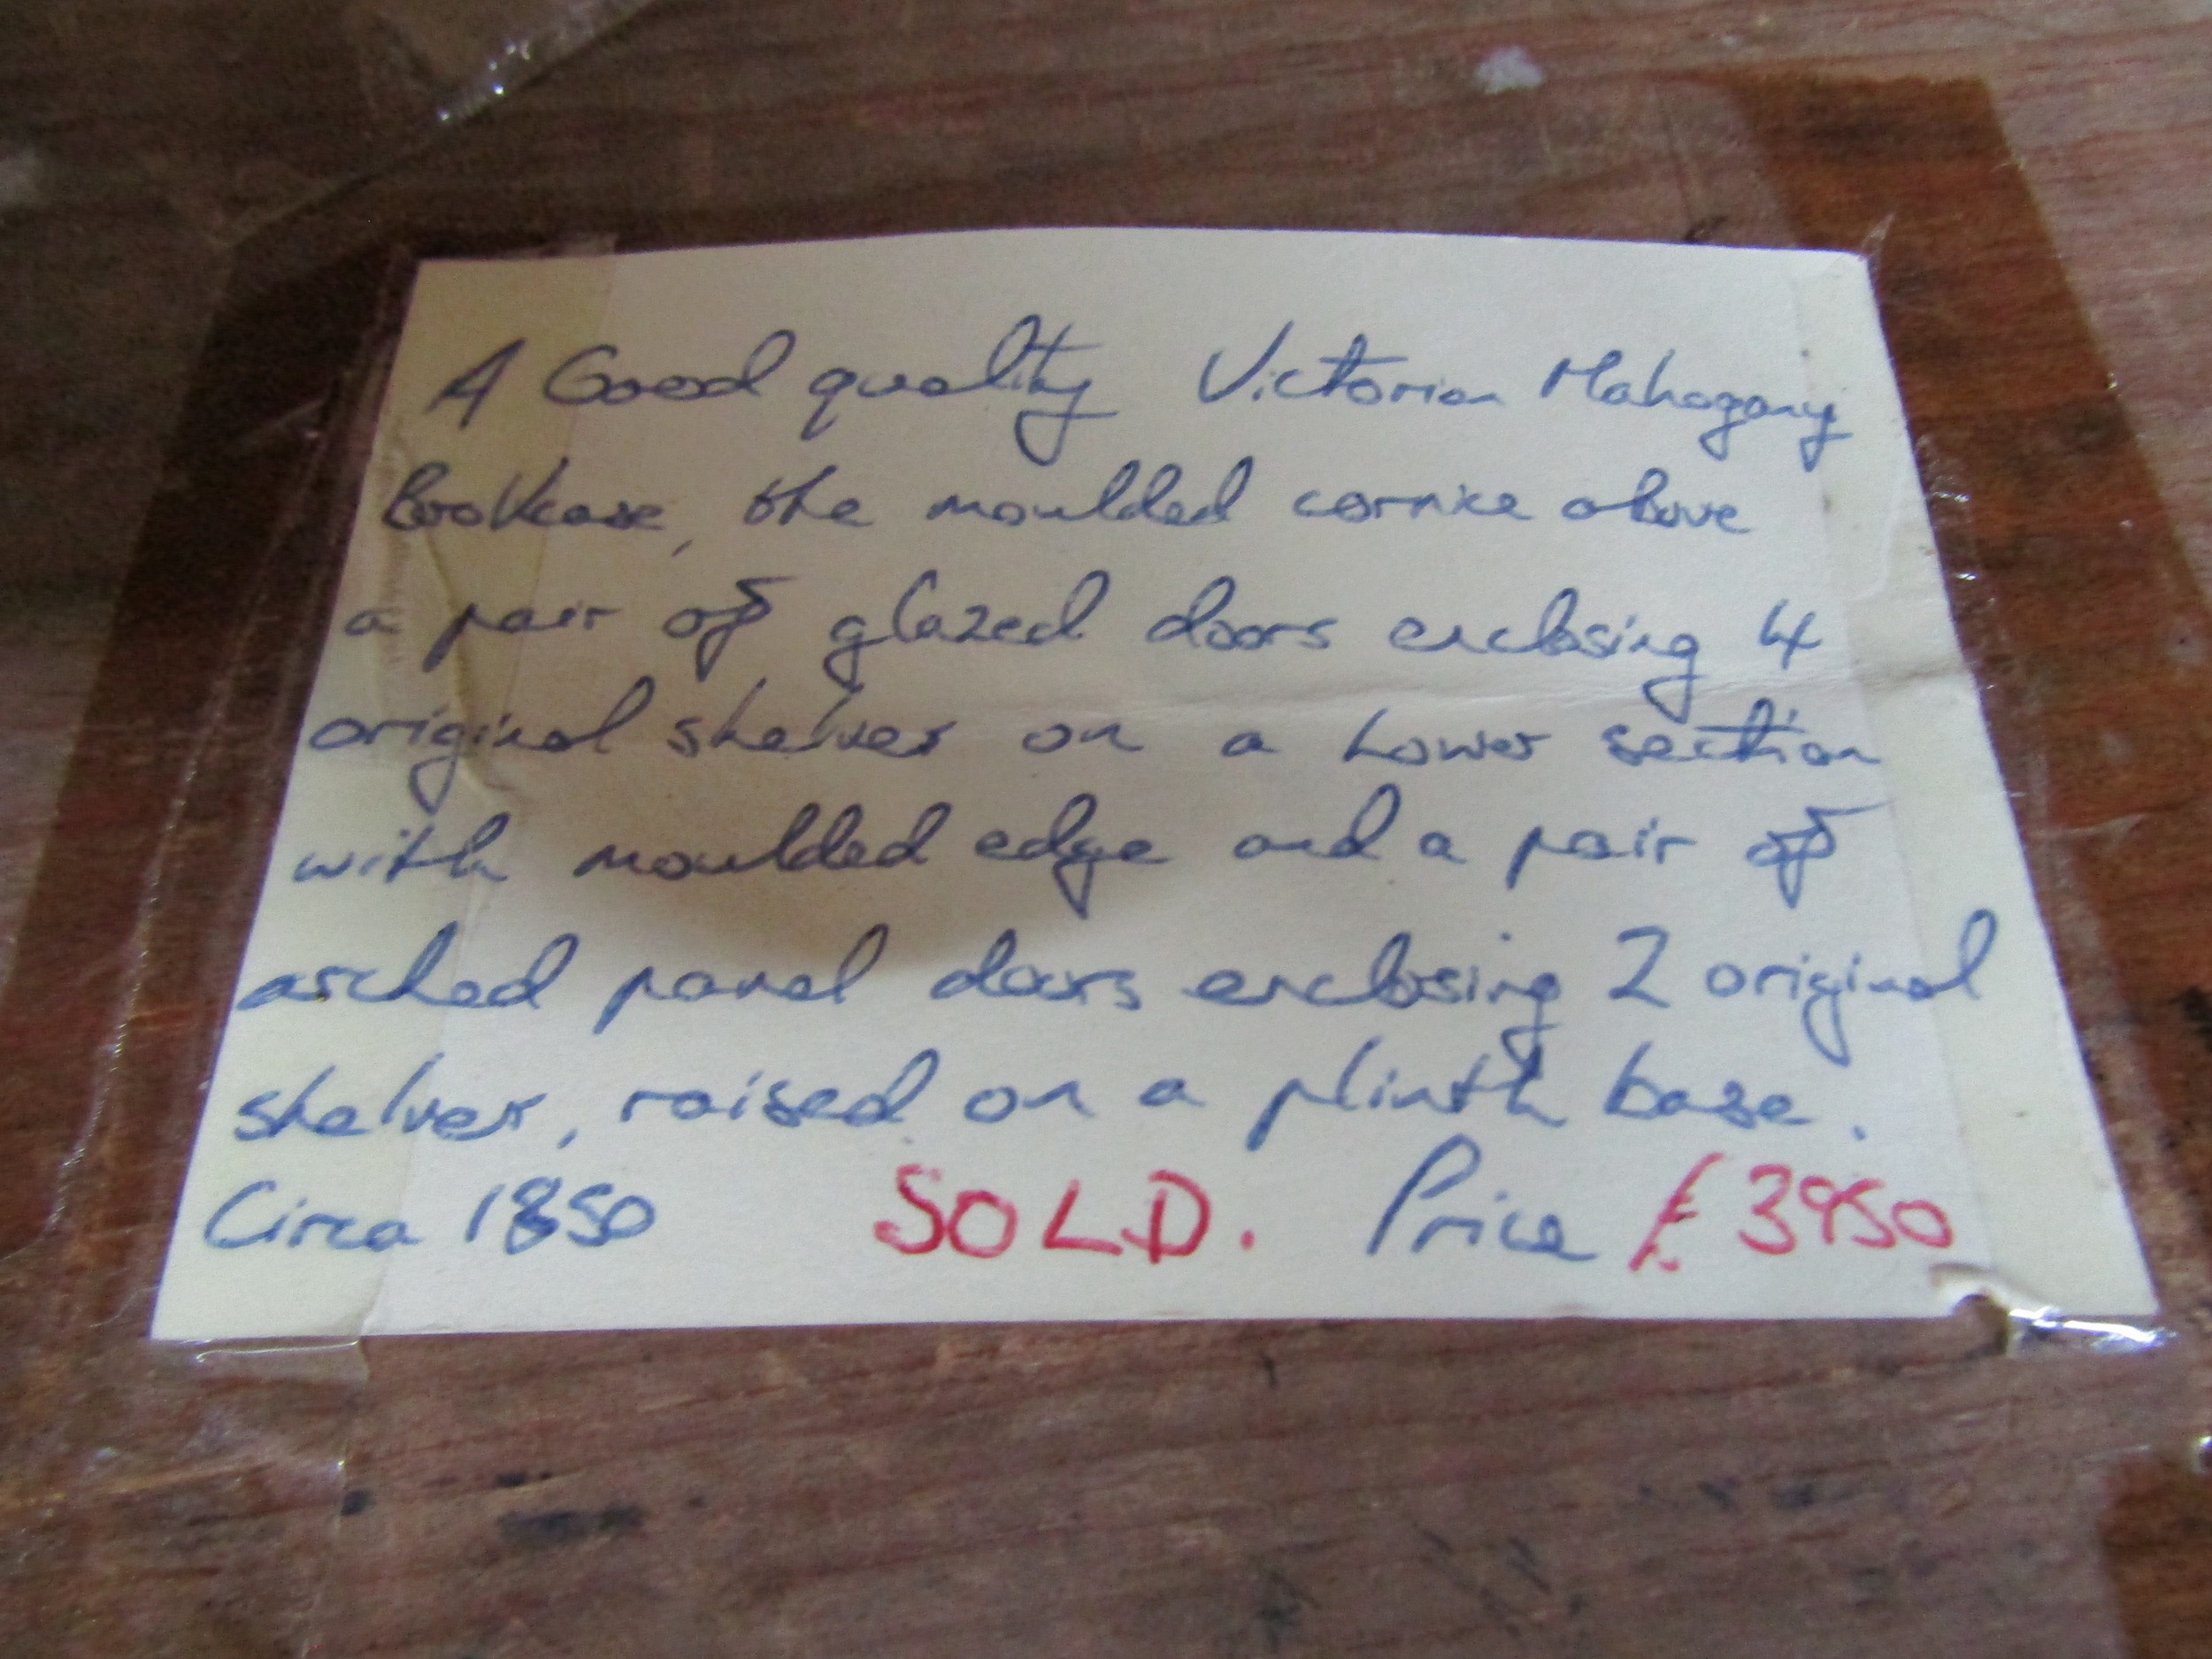 A Good quality Victorian Mahogany
bookcase, the moulded cornice above
a pair of glazed doors enclosing 4
original shelves on a Lower section
with moulded edge and a pair of
arched panel doors enclosing 2 original
shelves, raised on a plinth base.
Circa 1850 SOLD. Price £3950